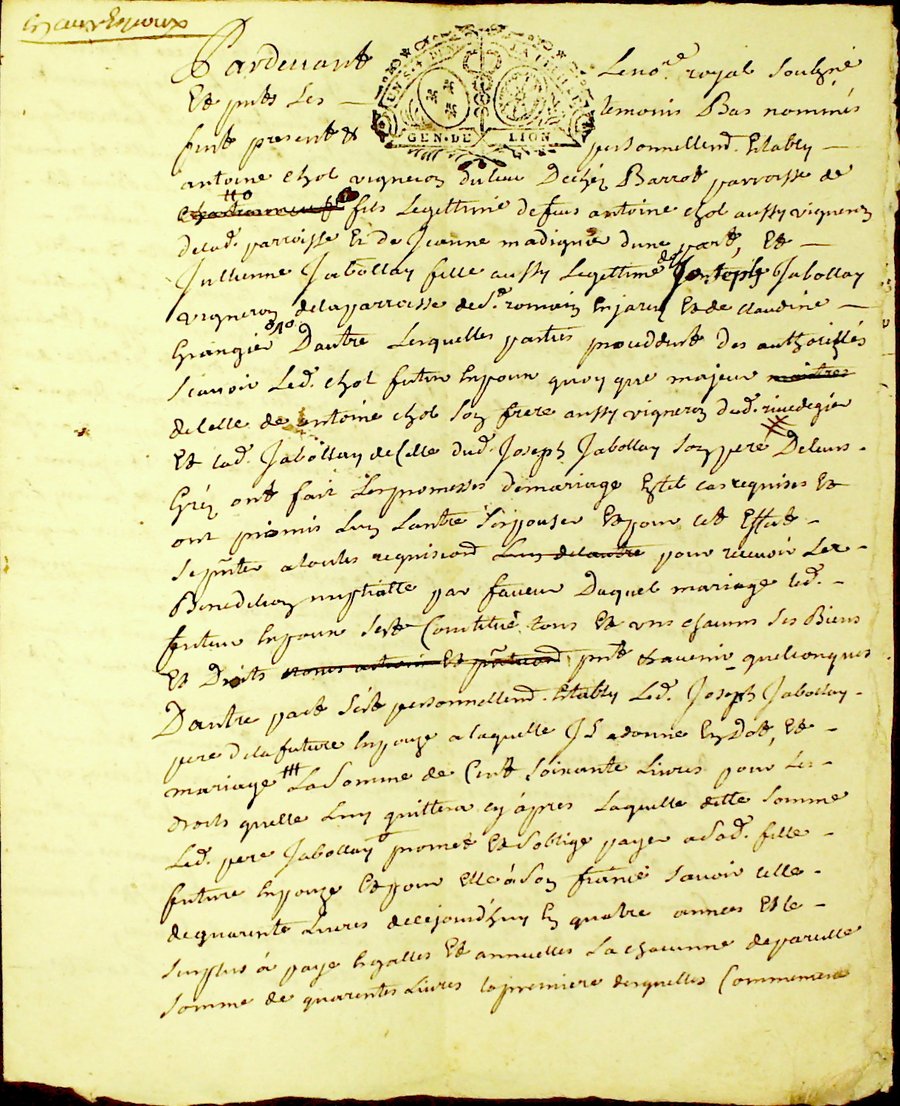 Pardevant Le no.re royal soubzné
Et pnts Les temoins Bas nommés
furt present & personnellemd. Etably
GEN. DE LION
antoine chol vigneron du lieu De chez Barrot parroisse de
fils Legettime de feus antoine chol aussy vigneron
de lad. parroisse Et de Jeanne madignier dune part, Et
Jullienne Jabollay fille aussy Legettime de Joseph Jabollay
vigneron de la parroisse de St. romain En jarez Et de Claudine
Grangier D'autre Lesquelles parties procedent des authorittés
scavoir Led. chol futur Epoux quoy que majeur
de Celle de antoine chol son frere aussy vigneron dud. rivedegier
Et lad. Jabollay de Celle dud. Joseph Jabollay son pere De leurs
Gréz ont fait Les promesses de mariage En tel cas requises Et
ont promis Lun Lautre s'Epouser Et pour cet Effet
se pnter a toutes requisiond. Lun de lautre pour recevoir La
Benediction nuptialle par faveur Duquel mariage Led.
futur Epoux s'est Constitué tous Et uns chacuns ses Biens
Et Droits pnts & avenir quelconques
D'autre part s'est personnellemd. Etably Led. Joseph Jabollay
pere de la future Epouze a laquelle Il a donné En Dot, Et
mariage La Somme de Cent Soixante Livres pour Les
droits quelle Luy quittera cy apres Laquelle ditte Somme
Led. pere Jabollay promet Et s'oblige payer a Sad. fille
future Epouze Et pour Elle à son fiancé savoir celle
de quarente Livres de cejourd'huy En quatre années Et le
surplus à paye Egalles Et annuelles La chacunne de pareille
Somme de quarentes Livres la premiere desquelles Commencera